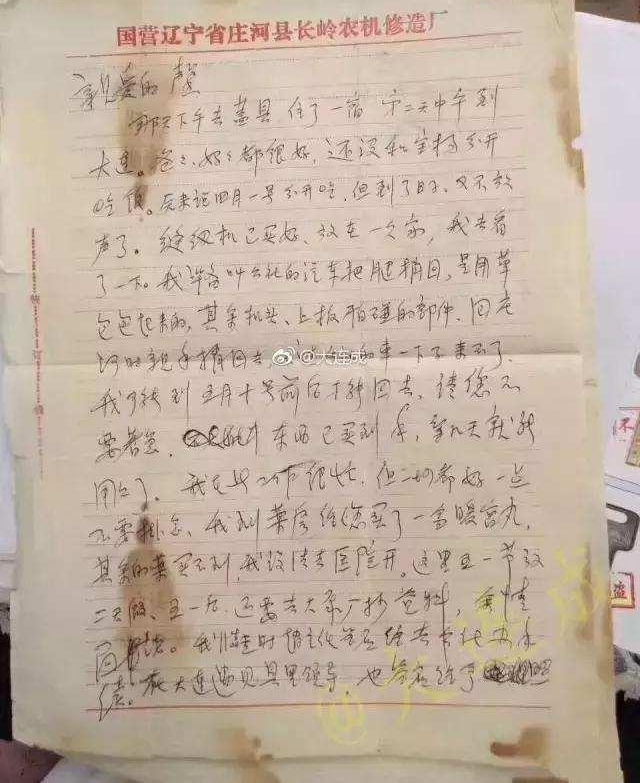 国营辽宁省庄河县长岭农机修造厂
亲爱的
那天下午去盖县住了一宿 第二天中午到
大连。爸爸、好好都很好,还没和宝 分开
吃饭。后来说四月一号分开吃,但到了日子,又不放
声了。缝纫机已买好、放在一久家,我去看
了一下。我准备叫公社的汽车把腿捎回,是用草
包包起来的,其余机头、上板怕碰的部件、回庄
河时亲手捎回去,的车一下子来不了、
我可能到五月十号前后才能回去,请您不
要着急,东西已买到手,几天就能
用上了。我在此工作很忙,但一切都好一点
不要挂念、我到药房给您买了一盒暖宫丸,
其余的药买不到,我设法去医院开。这里五一节放
二天假、五一后,还要去大 厂抄资料,
同 。我
债。在大连遇见县里领导,也 给了
@大连成